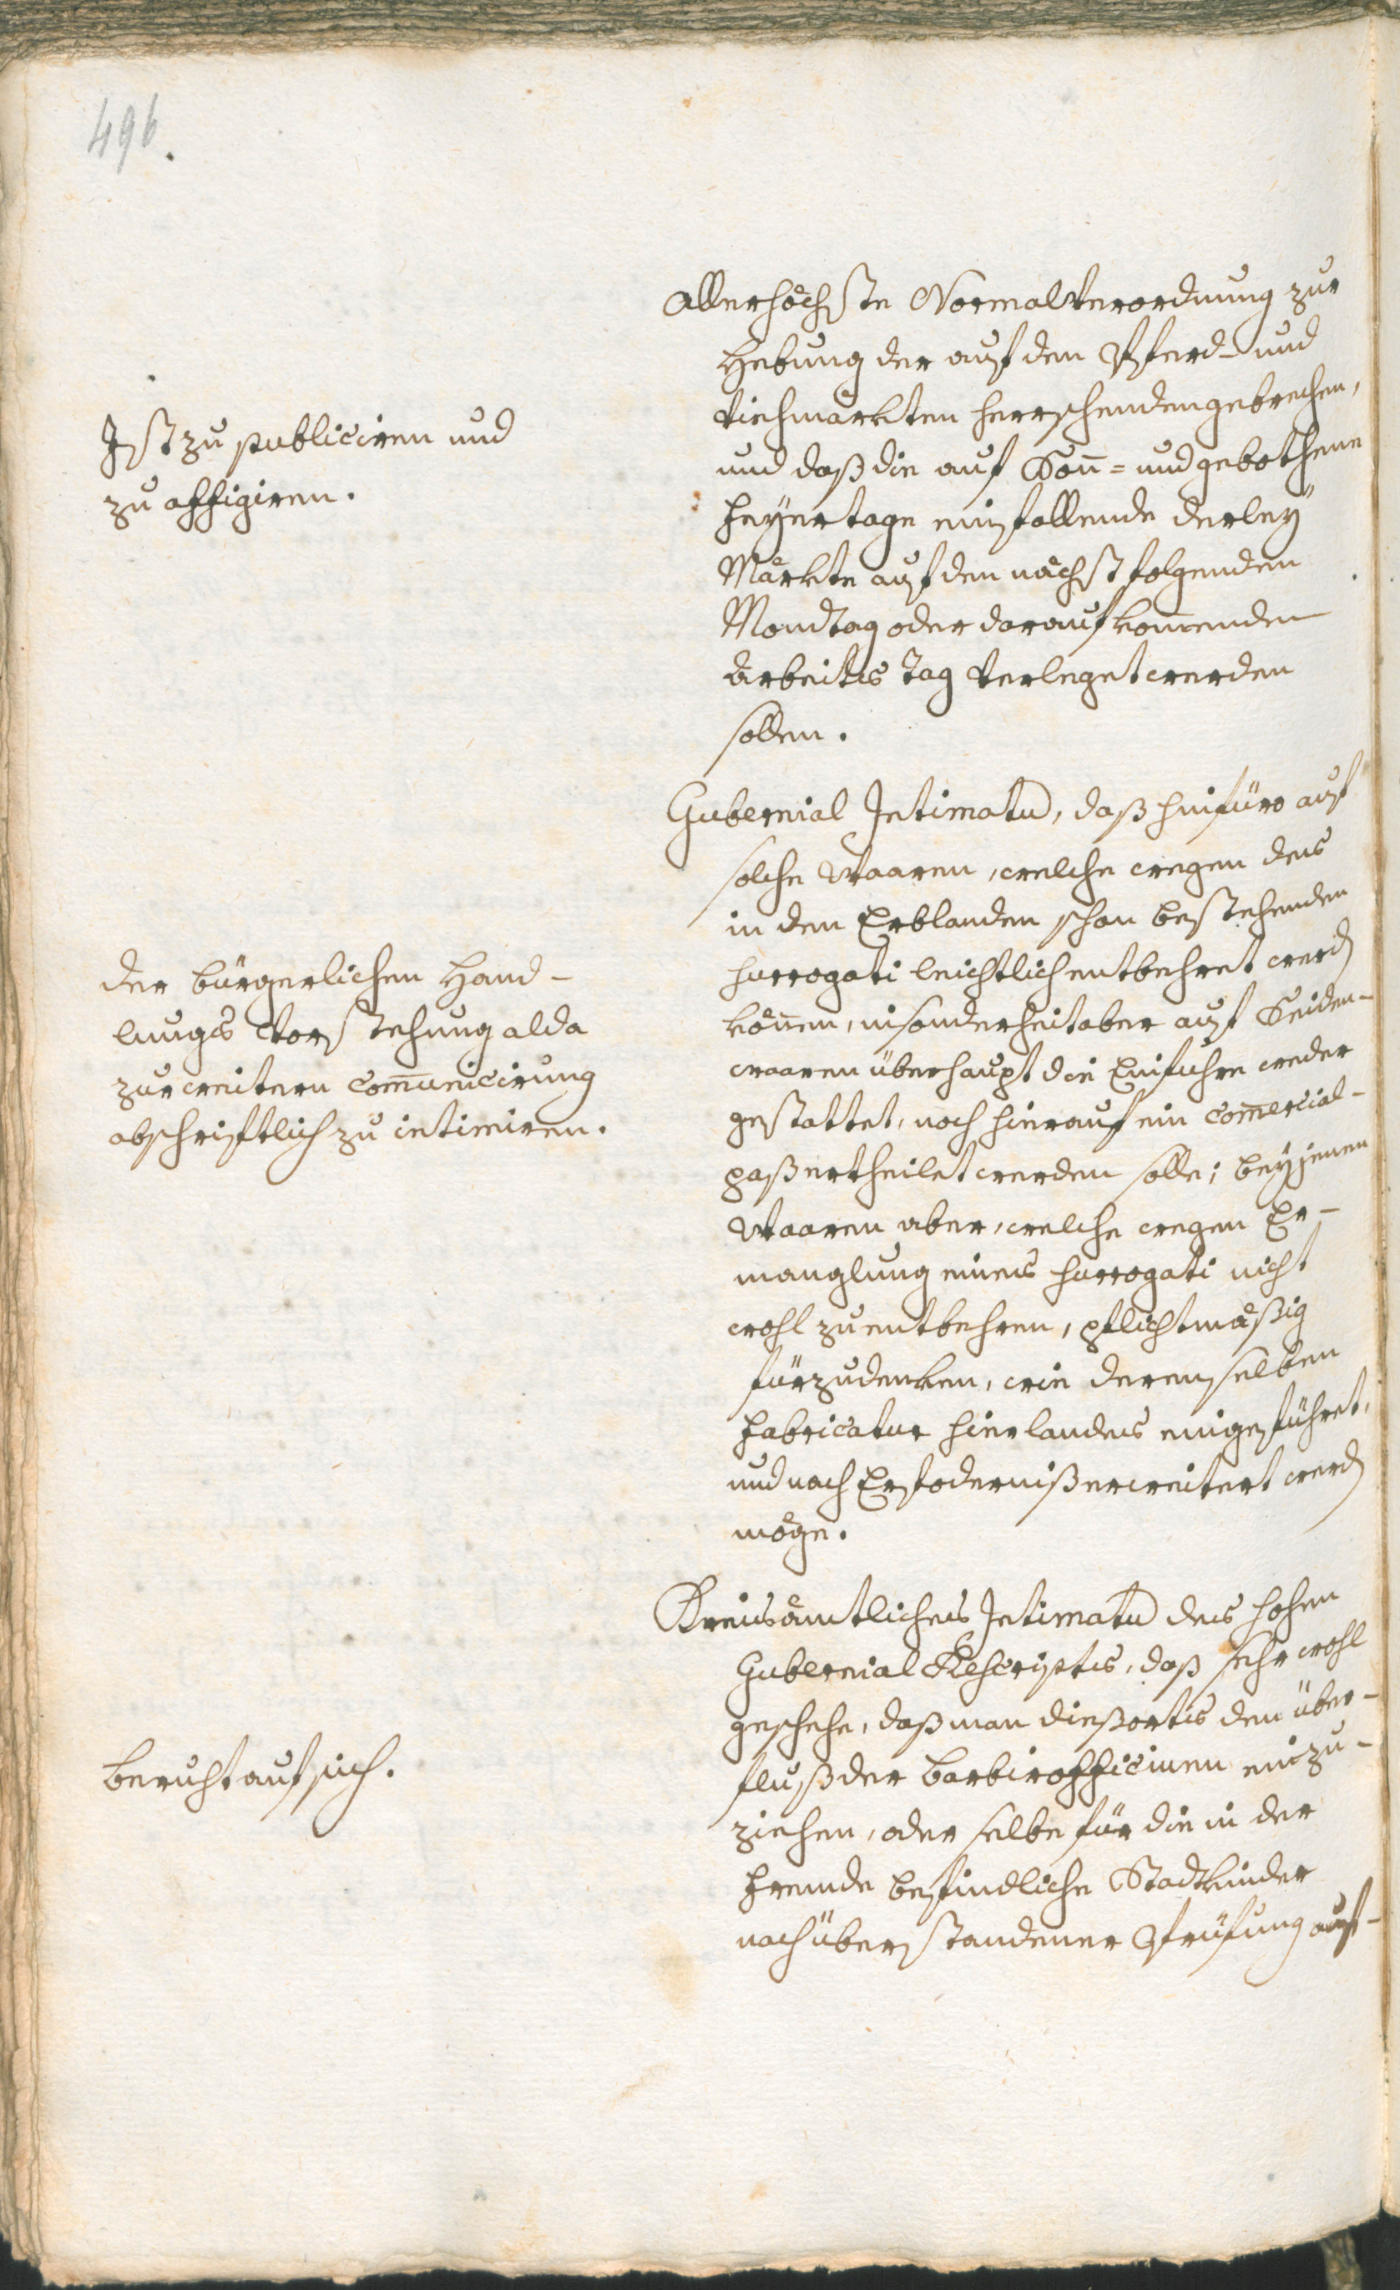 496.
Allerhöchste Normalverordnung zur
Hebung der auf den Pferd- und
Viehmärkten herrschenden gebrechen,
und daß die auf Soñ= und gebothene
feÿertage einfallende derleÿ
Märkte auf den nächst folgenden
Mondtag oder darauf kom̅enden
Arbeits Tag verleget werden
sollen.
Ist zu publiciren und
zu affigiren.
Gubernial Intimatu, daß hinfüro auf
solche Waaren, welche wegen des
in den Erblanden schon bestehenden
surrogati leichtlich entbehret werd
köñen, insonderheit aber auf Seiden-
waaren überhaupt die Einfuhre weder
gestattet, noch hierauf ein Com̅ercial-
paß ertheilet werden solle; beÿ jenen
Waaren aber, welche wegen Er-
manglung eines surrogati nicht
wohl zu entbehren, pflichtmäßig
fürzudenken, wie derenselben
fabricatur hierlandes eingeführet,
und nach Erfoderniß erweitert werd
möge.
der bürgerlichen Hand-
lungs Vorstehung alda
zur weitern Com̅unicirung
abschriftlich zu intimiren.
Kreisämtliches Intimatu des hohen
Gubernial Rescripts, daß sehr wohl
geschehe, daß man dießorts den über-
fluß der barbirofficinen einzu-
ziehen, oder selbe für die in der
fremde befindliche Stadtkinder
nach überstandener Prüfung auf-
beruht auf sich.